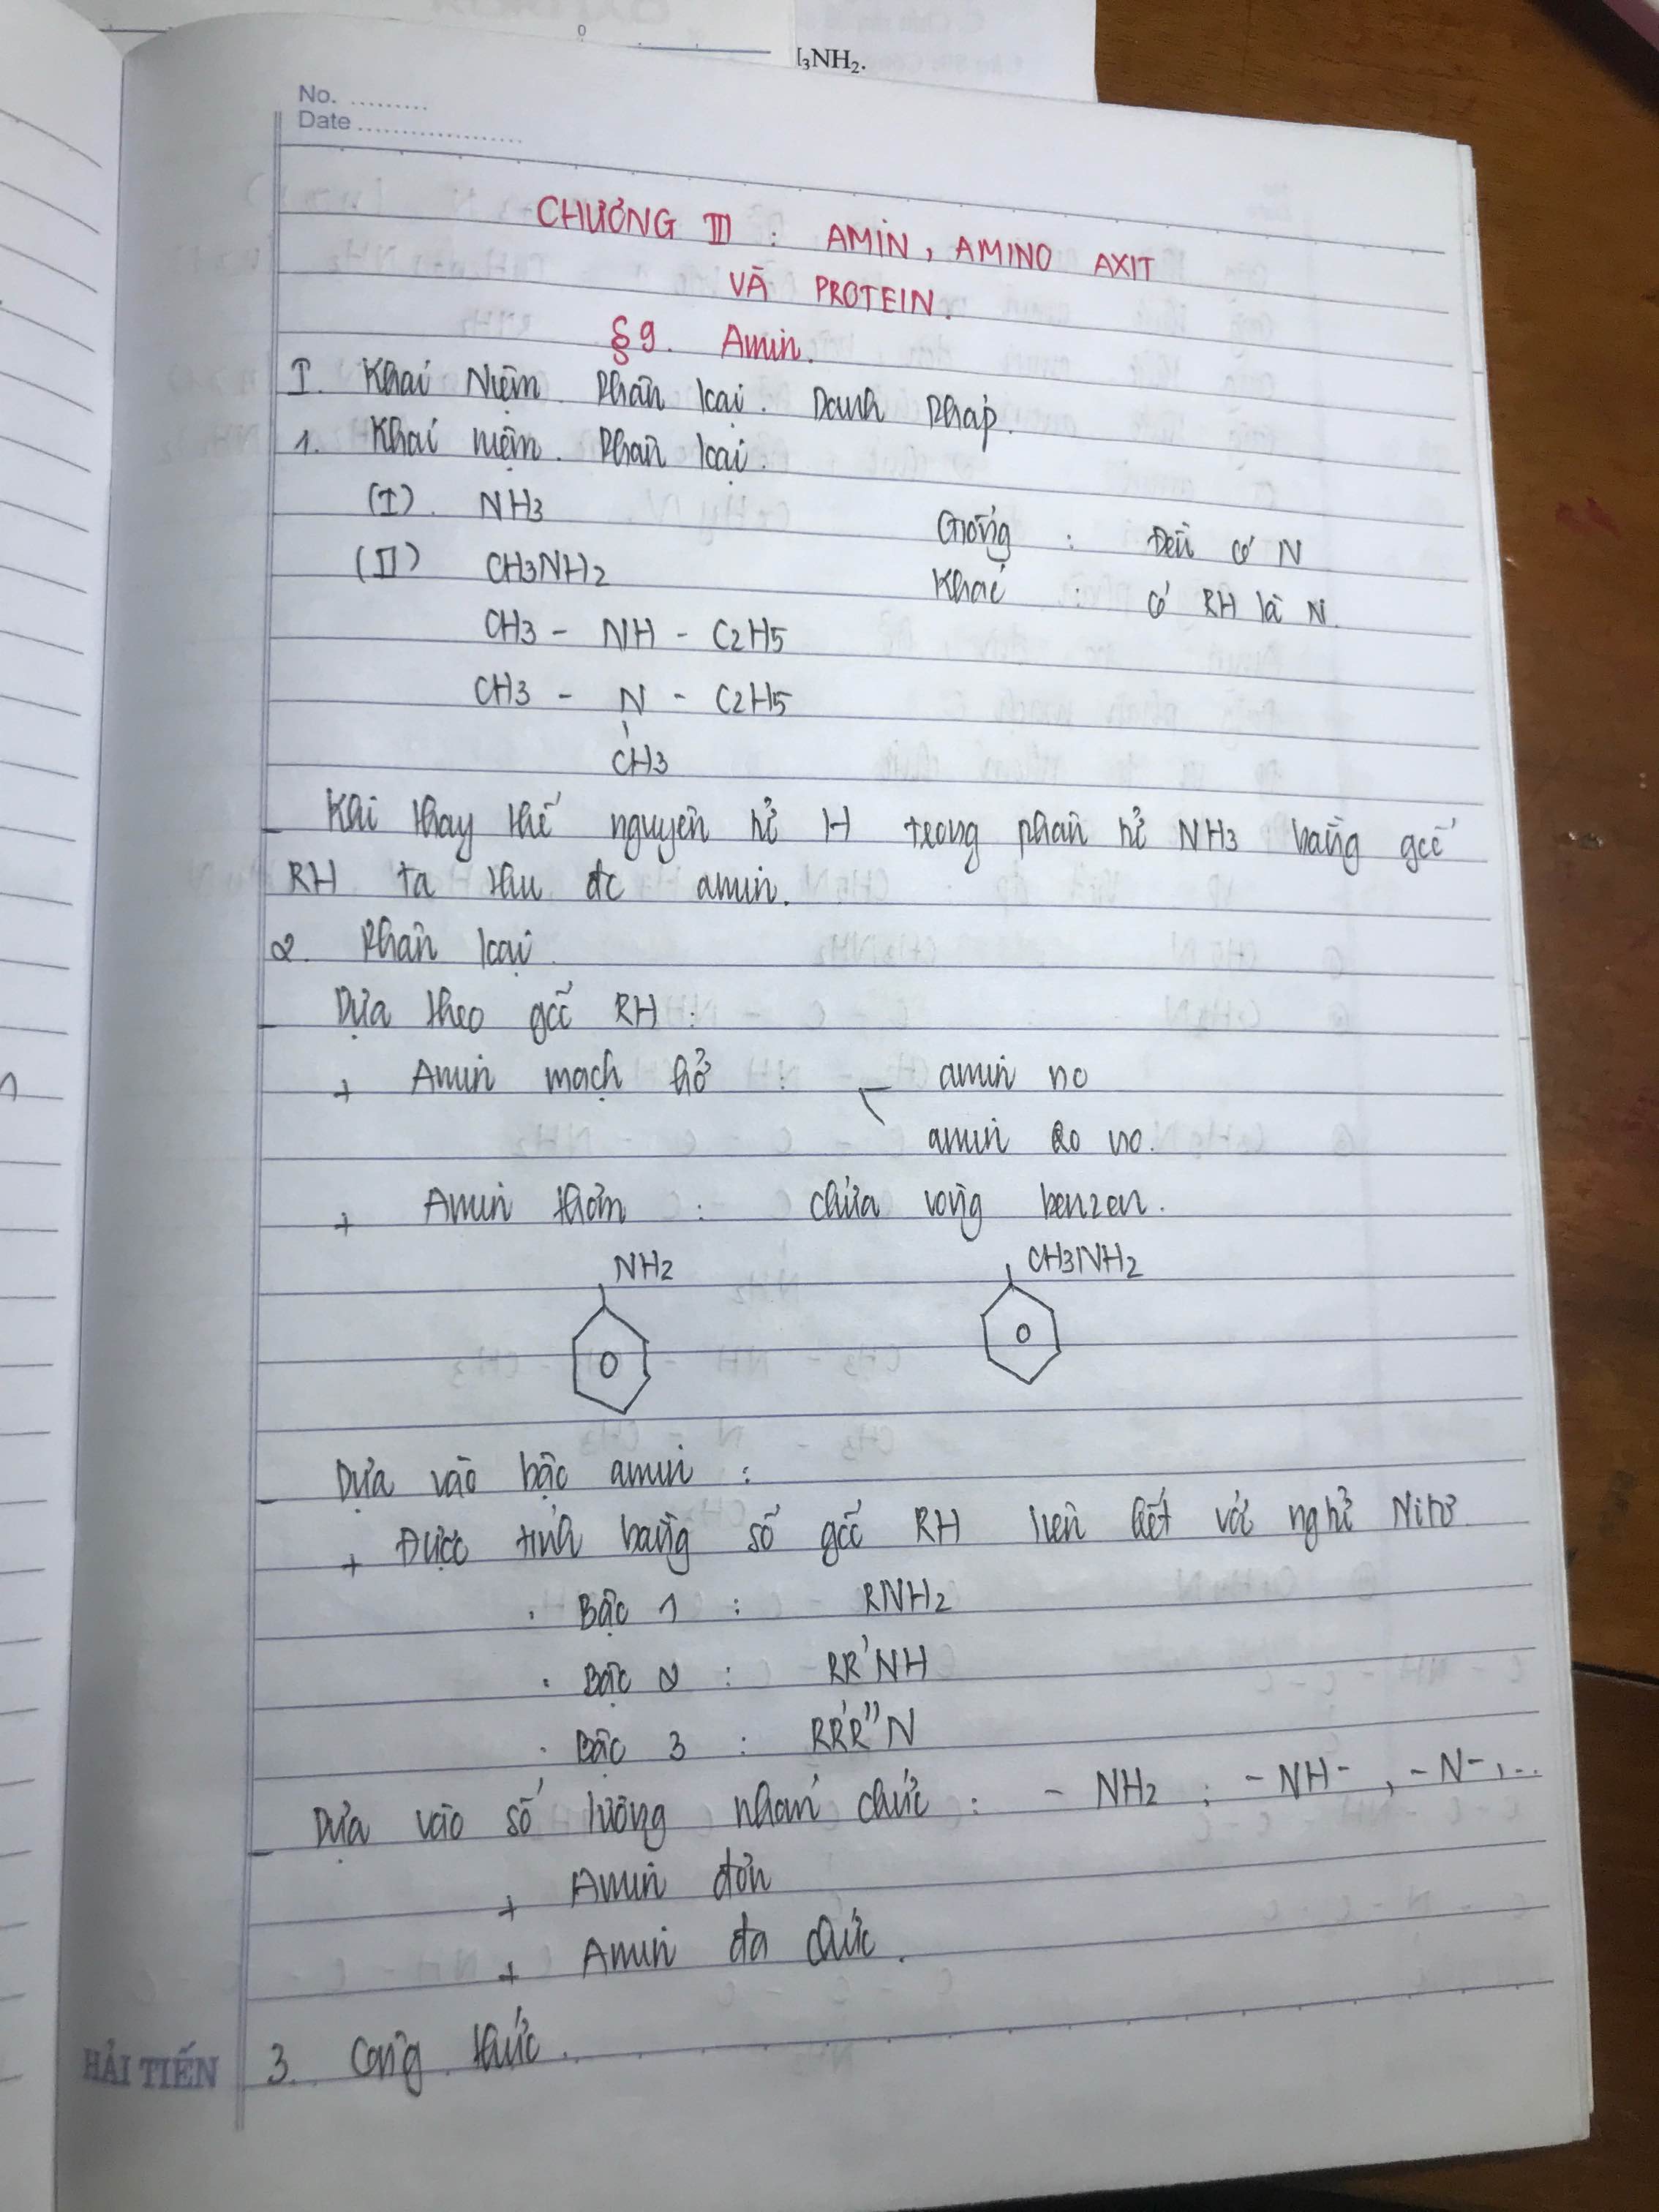 [₃NH₂.
No. .........
Date ..................
CHƯƠNG III : AMIN, AMINO AXIT
VÀ PROTEIN.
§9. Amin.
I. Khái Niệm. Phân loại. Danh Pháp.
1. Khái niệm. Phân loại.
(I). NH3
Giống : Đều có N
(II) CH3NH2
Khác : có RH là N.
CH3 - NH - C2H5
CH3 - N - C2H5
CH3
- Khi thay thế nguyên tử H trong phân tử NH3 bằng gốc
RH ta thu đc amin.
2. Phân loại.
- Dựa theo gốc RH :
+ Amin mạch hở : amin no
amin ko no.
+ Amin thơm : chứa vòng benzen.
NH2 CH3NH2
- Dựa vào bậc amin :
+ Được tính bằng số gốc RH liên kết với ng tử Nitơ.
. Bậc 1 : RNH2
. Bậc 2 : RR'NH
. Bậc 3 : RR'R''N
- Dựa vào số lượng nhóm chức : - NH2 ; - NH - , - N - , ...
+ Amin đơn
+ Amin đa chức.
3. Công thức.
HẢI TIẾN